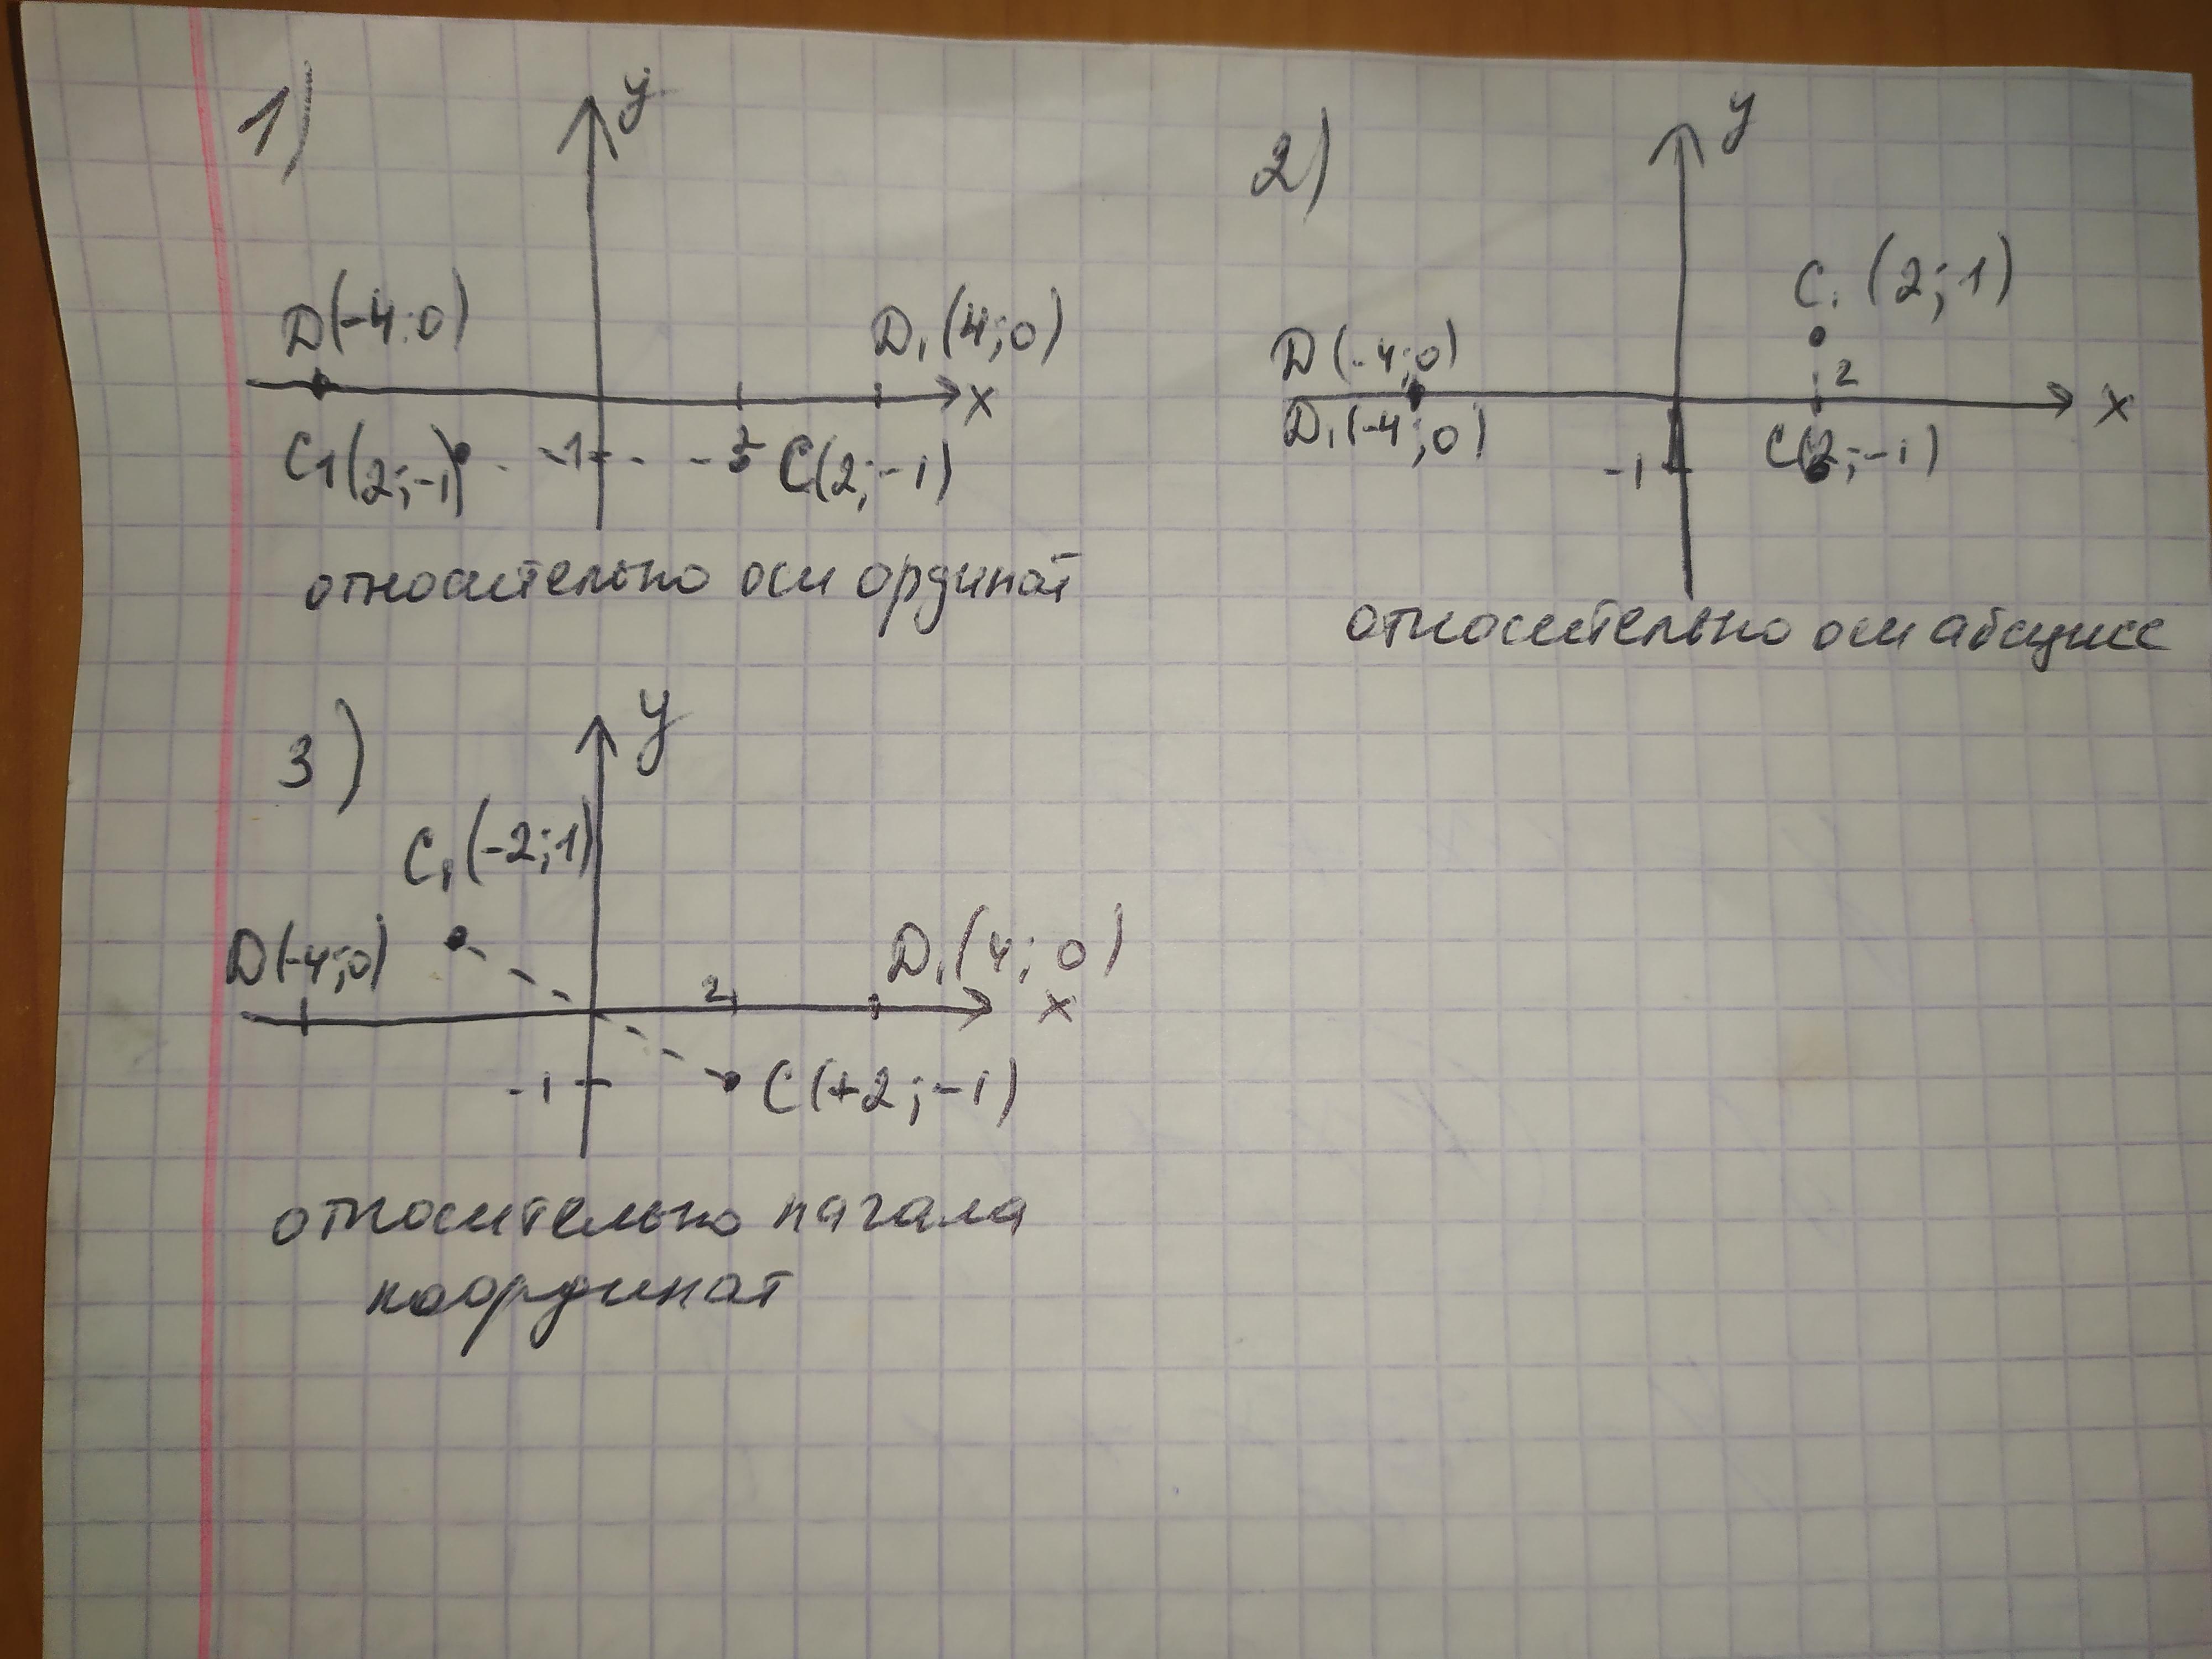 1)
y
D(-4;0)
D₁(4;0)
x
C1(2;-1)
-1
2
C(2;-1)
относительно оси ординат
2)
y
C₁(2;1)
D(-4;0)
2
x
D₁(-4;0)
-1
C(2;-1)
относительно оси абсцисс
3)
y
C₁(-2;1)
D(-4;0)
2
D₁(4;0)
x
-1
C(+2;-1)
относительно начала
координат